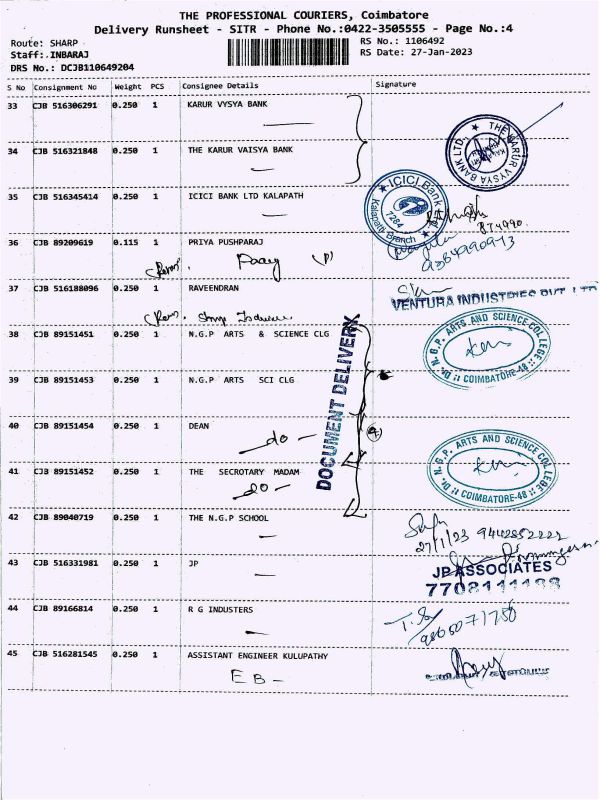 THE PROFESSIONAL COURIERS, Coimbatore
Delivery Runsheet - SITR - Phone No.:0422-3505555 - Page No.:4
Route: SHARP RS No.: 1106492
Staff: INBARAJ RS Date: 27-Jan-2023
DRS No.: DCJB110649204
S No Consignment No Weight PCS Consignee Details Signature
33 CJB 516306291 0.250 1 KARUR VYSYA BANK
THE KARUR VYSYA BANK LTD.
34 CJB 516321848 0.250 1 THE KARUR VAISYA BANK
35 CJB 516345414 0.250 1 ICICI BANK LTD KALAPATH
ICICI Bank Ltd
7264
Kalapatti Branch
36 CJB 89209619 0.115 1 PRIYA PUSHPARAJ
37 CJB 516188096 0.250 1 RAVEENDRAN
VENTURA INDUSTRIES PVT LTD
38 CJB 89151451 0.250 1 N.G.P ARTS & SCIENCE CLG
Dr. N.G.P. ARTS AND SCIENCE COLLEGE
COIMBATORE-48
39 CJB 89151453 0.250 1 N.G.P ARTS SCI CLG
DOCUMENT DELIVERY
40 CJB 89151454 0.250 1 DEAN
- do - 4
41 CJB 89151452 0.250 1 THE SECROTARY MADAM
- do -
Dr. N.G.P. ARTS AND SCIENCE COLLEGE
COIMBATORE-48
42 CJB 89040719 0.250 1 THE N.G.P SCHOOL
27/1/23
43 CJB 516331981 0.250 1 JP
JP ASSOCIATES
44 CJB 89166814 0.250 1 R G INDUSTERS
45 CJB 516281545 0.250 1 ASSISTANT ENGINEER KULUPATHY
EB -